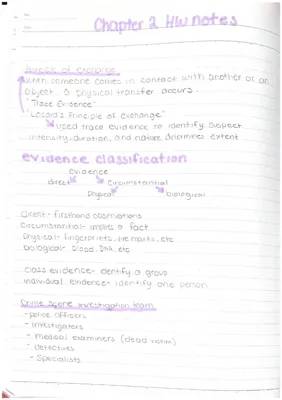 Chapter 2 HW notes
Principle of exchange
when someone comes in contact with another or an
object, a physical transfer occurs.
"Trace Evidence"
"Locard's Principle of exchange"
used trace evidence to identify suspect
intensity, duration, and nature determines extent
evidence classification
evidence
direct Circumstantial
Physical biological
Direct- firsthand observations
Circumstantial- implies a fact
Physical- fingerprints, tire marks, etc
biological- blood, DNA, etc
Class evidence- identify a group
individual evidence- identify one person
Crime scene investigation team
- police officers
- investigators
- medical examiners (dead victim)
- detectives
- Specialists